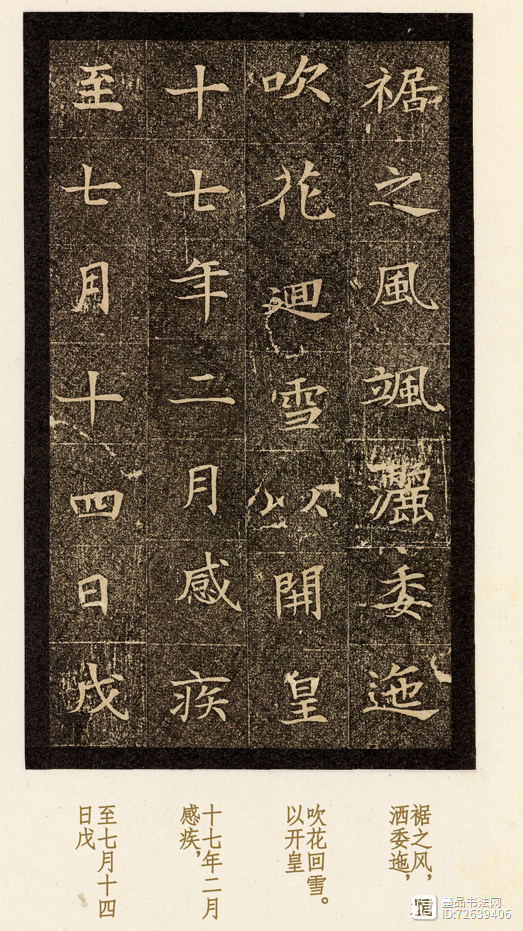 裾之風颯灑委迤
吹花迴雪以開皇
十七年二月感疾
至七月十四日戊
裾之风，
洒委迤，
吹花回雪。
以开皇
十七年二月
感疾，
至七月十四
日戊
墨品书法网
ID:72639406